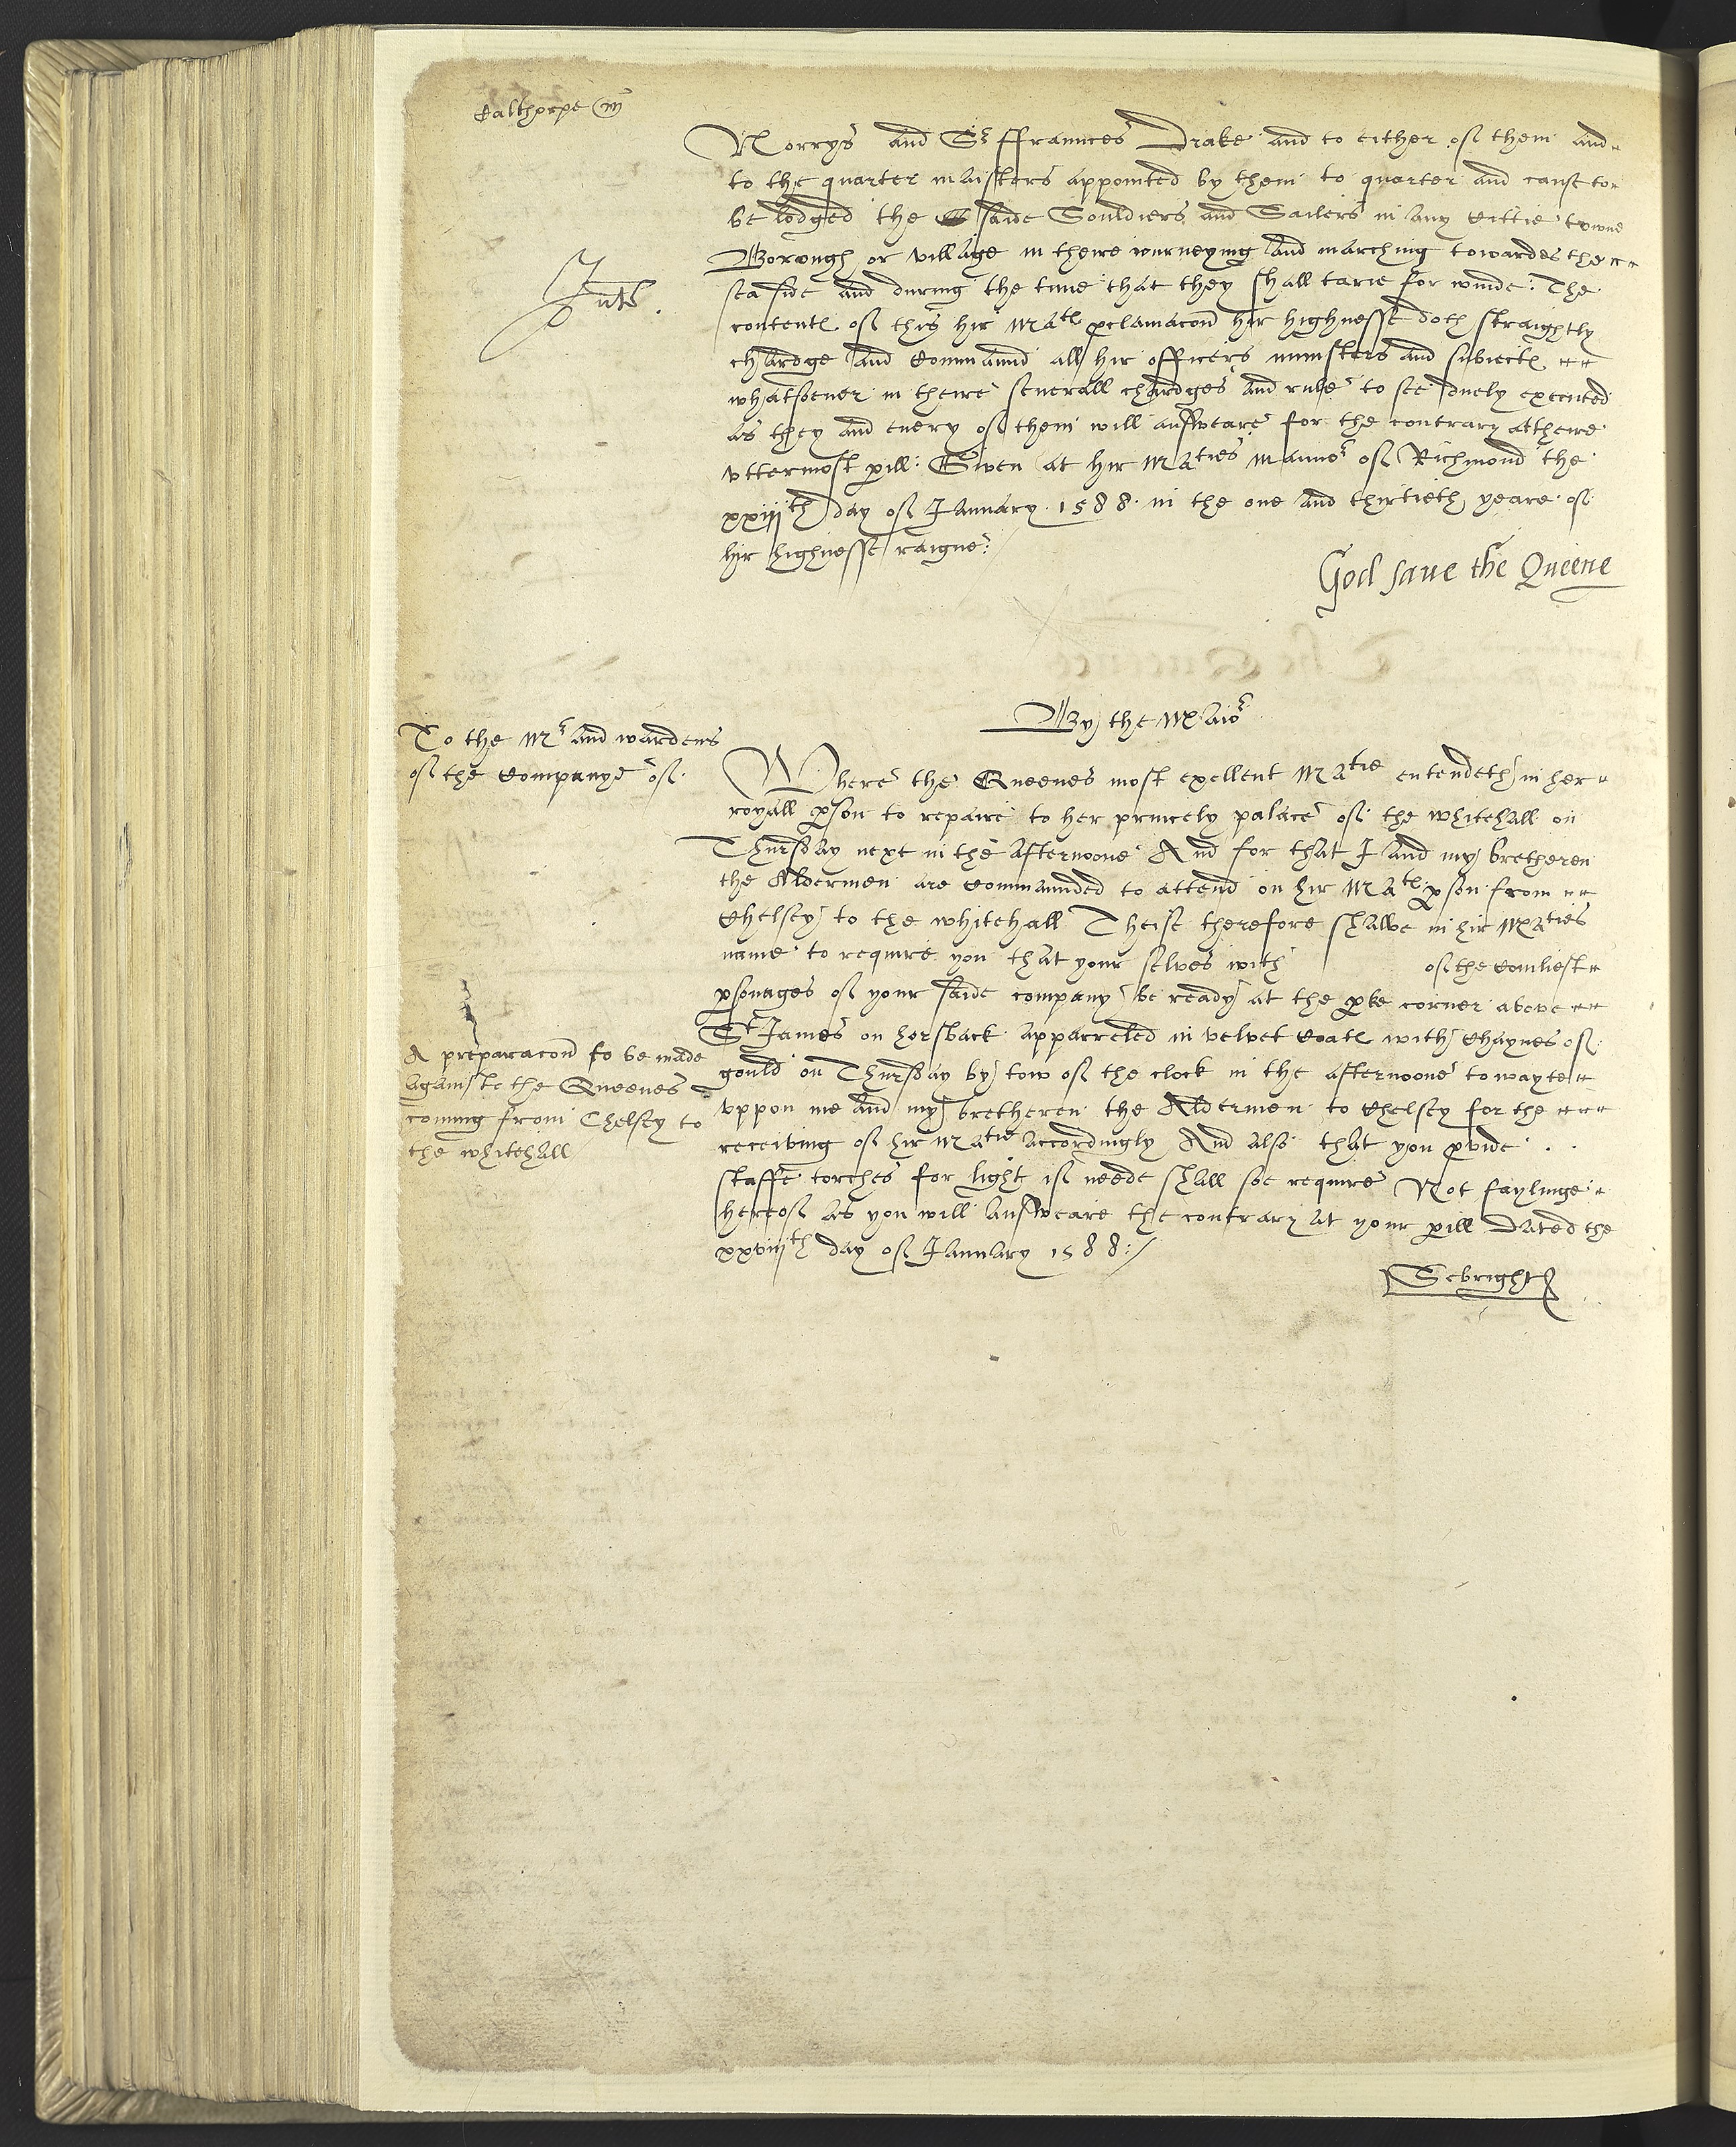 Calthorpe m
Norrys and Sr ffraunces Drake and to either of them and
to the quarter maisters appointed by them to quarter and cause to
be lodged the saide Souldiers and Sailers in any Cittie towne
Borough or village in theire iourneying and marching towardes the
sea side and during the time that they shall tarie for winde: The
contentes of this hir Maties pclamacon hir highnesse doth straightly
chardge and Commaund all hir officers ministers and subiectes
whatsoeuer in theire seuerall chardges and rule to see duely executed
as they and euery of them will answeare for the contrary at theire
vttermost pill: Given at hir Maties manno of Richmond the
xxiijth day of January 1588 in the one and thirtieth yeare of
hir highnesse raigne:/
God saue the Queene
Intr.
By the Maior
To the Mr and wardens
of the Companye of
Where the Queenes most exellent Matie entendeth in her
royall pson to repaire to her princely palace of the whitehall on
Thursday next in the afternoone And for that I and my bretheren
the Aldermen are Commaunded to attend on hir Maties pson from
Chelsey to the whitehall Theise therefore shalbe in hir Maties
name to require you that your selves with of the Comliest
psonages of your saide company be ready at the pke corner above
St James on horsback apparreled in velvet Coates with Chaynes of
gould on Thursday by tow of the clock in the afternoone to wayte
vppon me and my bretheren the Aldermen to Chelsey for the
receiving of hir Matie accordingly And also that you pvide
staffe torches for light if neede shall soe require Not faylinge
hereof as you will answeare the contrary at your pill Dated the
xxviijth day of January 1588:/
A preparacon to be made
againste the Queenes
coming from Chelsey to
the whitehall
Sebright